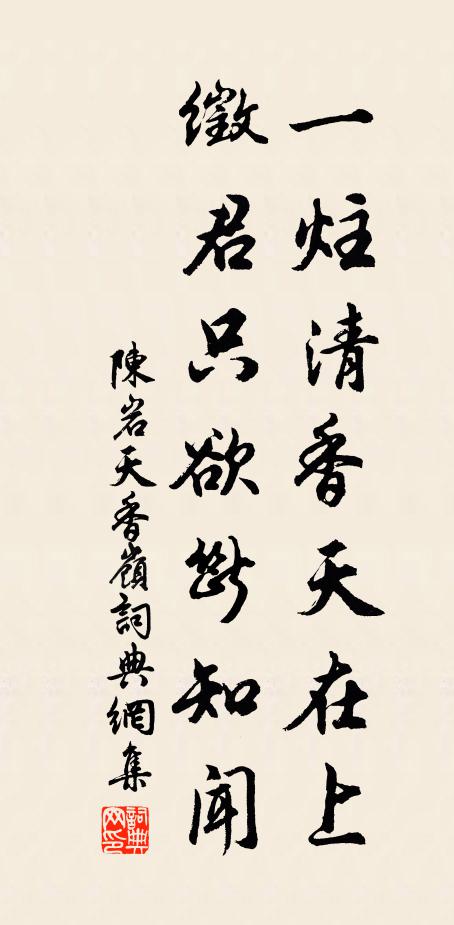 一炷清香天在上
徵君只欲斷知聞
陳岩天香嶺詞典網集
詞典网印